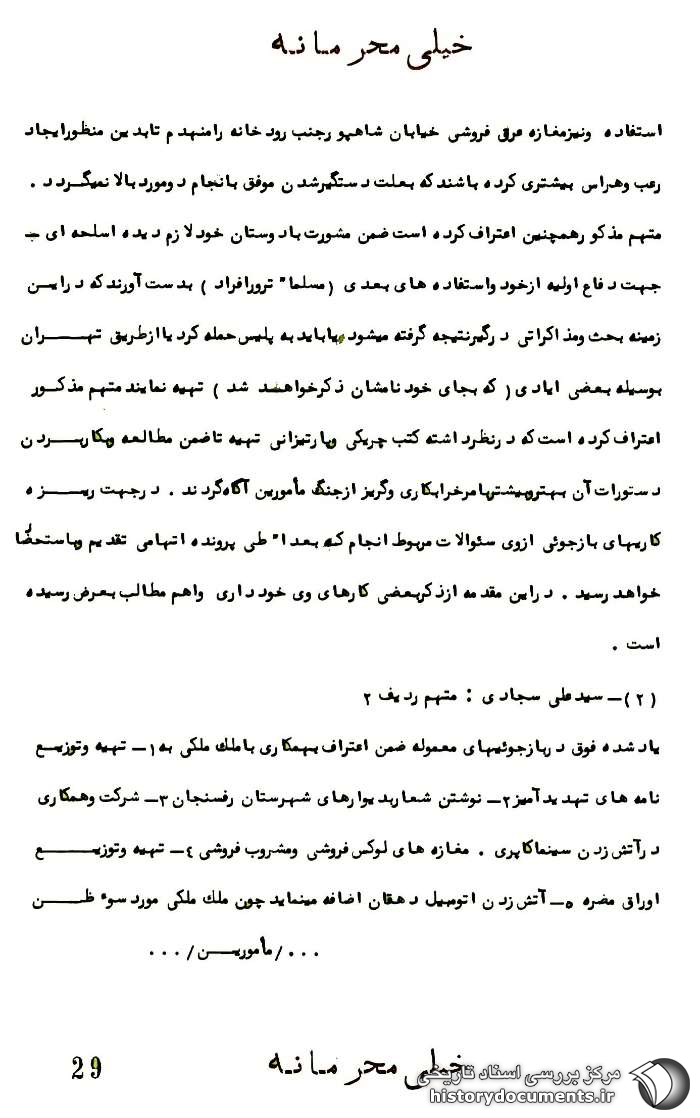 خیلی محرمانه
استفاده ونیزمغازه عرق فروشی خیابان شاهپورجنب رودخانه رامنهدم تابدین منظورایجاد
رعب وهراس بیشتری کرده باشندکه بعلت دستگیرشدن موفق بانجام دومورد بالا نمیگردد .
متهم مذکورهمچنین اعتراف کرده است ضمن مشورت بادوستان خودلازم دیده اسلحه ای ـ
جهت دفاع اولیه ازخود واستفاده های بعدی (مسلماً ترورافراد ) بدست آورندکه دراین
زمینه بحث ومذاکراتی درگیرنتیجه گرفته میشود یاباید به پلیس حمله کرد یاازطریق تهران
بوسیله بعضی ایادی ( که بجای خود نامشان ذکرخواهد شد ) تهیه نمایند متهم مذکور
اعتراف کرده است که درنظرداشته کتب چریکی وپارتیزانی تهیه تاضمن مطالعه وبکاربردن
دستورات آن بهتروبیشتربامرخرابکاری وگریز ازجنگ مأمورین آگاه گردند . درجهت ریزه
کاریهای بازجوئی ازوی سئوالات مربوط انجام که بعداً طی پرونده اتهامی تقدیم وباستحضار
خواهد رسید . دراین مقدمه ازذکربعضی کارهای وی خودداری واهم مطالب بعرض رسیده
است .
(۲)ـ سیدعلی سجادی : متهم ردیف ۲
یادشده فوق دربازجوئیهای معموله ضمن اعتراف بهمکاری باملك ملکی به ۱ـ تهیه وتوزیع
نامه های تهدیدآمیز ۲ـ نوشتن شعاربدیوارهای شهرستان رفسنجان ۳ـ شرکت وهمکاری
درآتش زدن سینماکاپری . مغازه های لوکس فروشی ومشروب فروشی ٤ـ تهیه وتوزیع
اوراق مضره ٥ـ آتش زدن اتومبیل دهقان اضافه مینماید چون ملك ملکی مورد سوء ظن
. . . /مأمورین/ . . .
خیلی محرمانه
29
مرکز بررسی اسناد تاریخی
historydocuments.ir